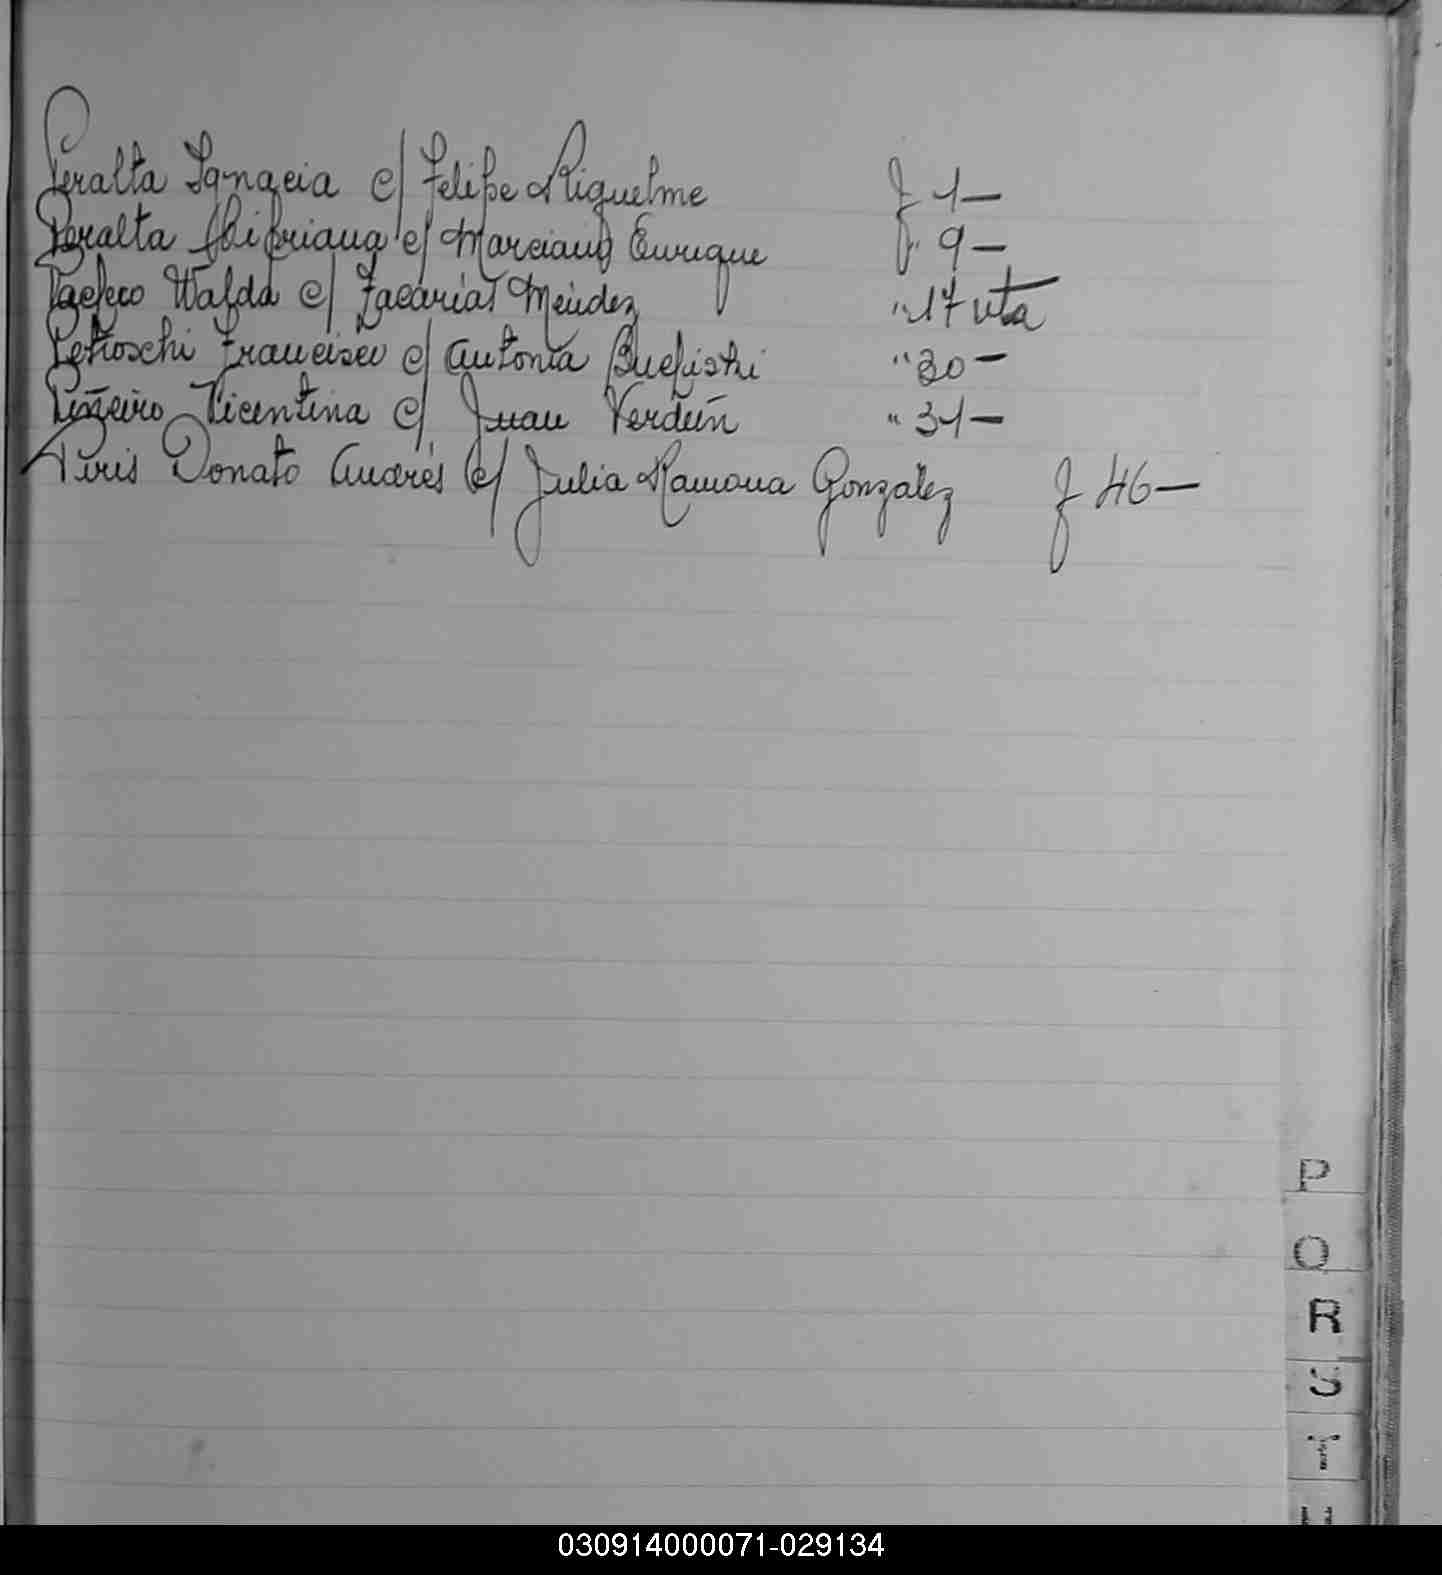 Peralta Ignacia c/ Felipe Riquelme f 1—
Peralta Cipriana c/ Marciano Enrique f. 9—
Pacheco Walda c/ Zacarías Méndez " 17 vta
Petroschi Francisco c/ Antonia " 30—
Piñeiro Vicentina c/ Juan Verdún " 31—
Piris Donato Andrés c/ Julia Ramona González f 46—
P
O
R
S
T
030914000071-029134